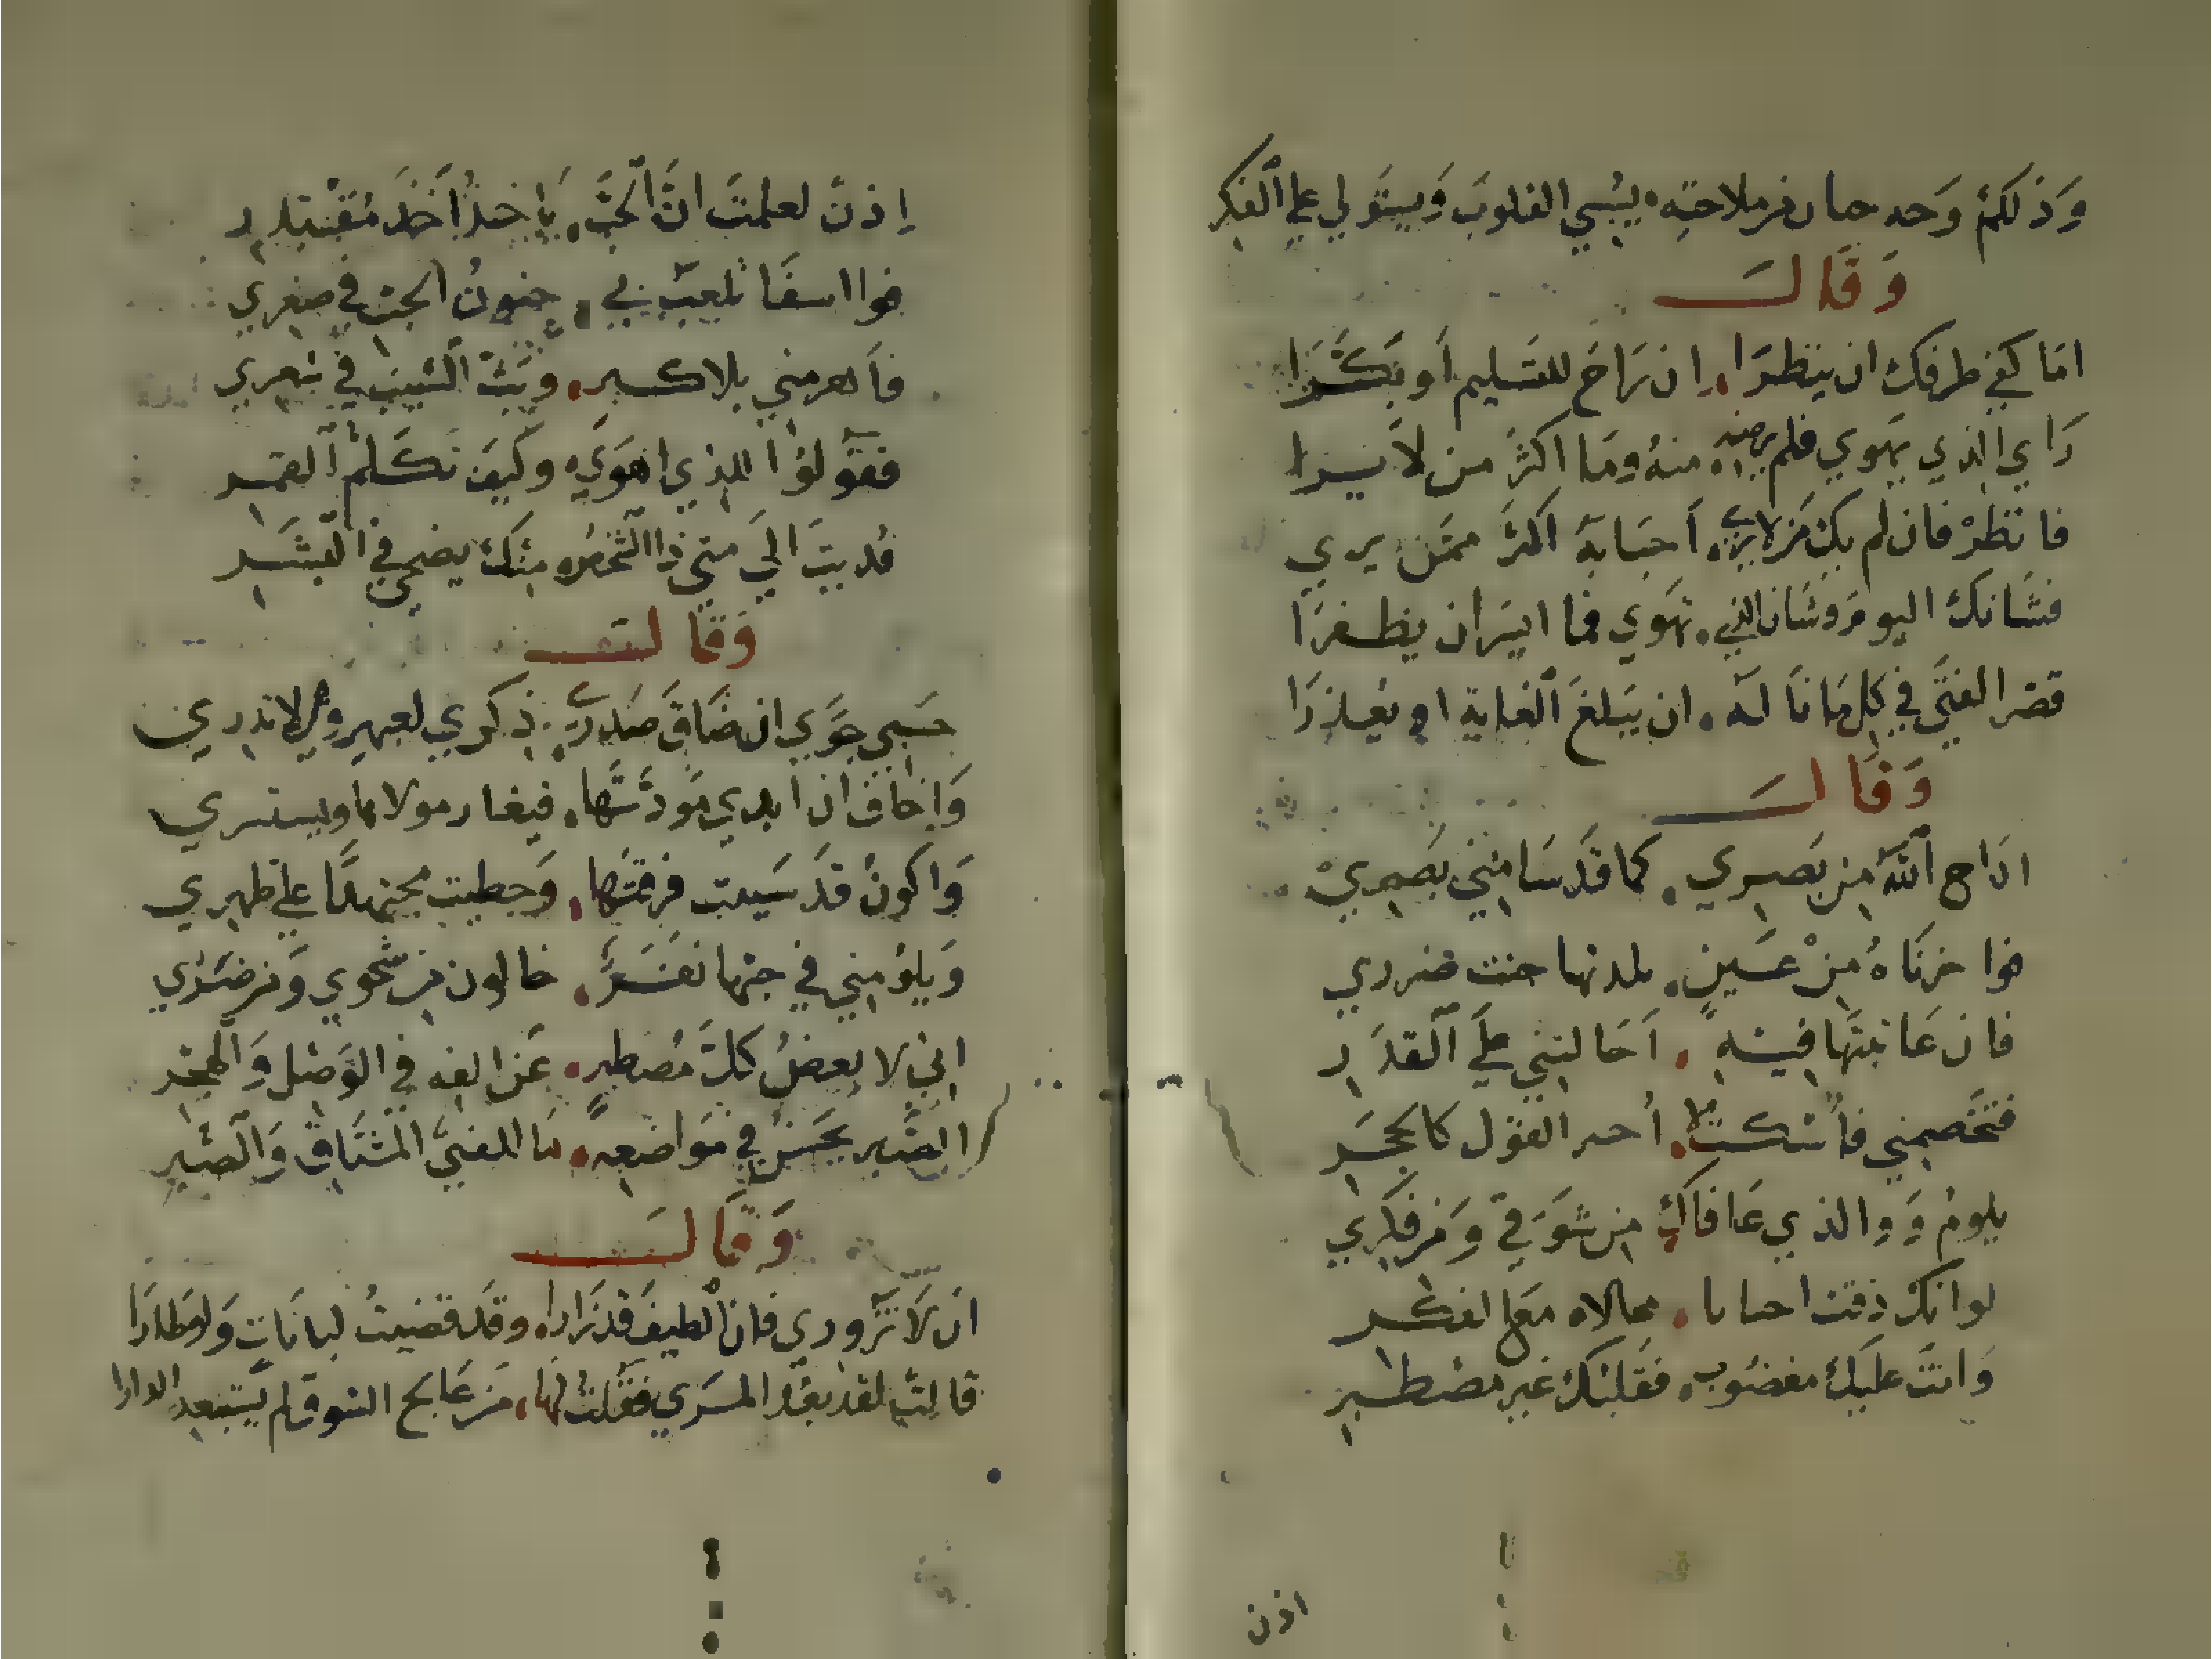 وَذَلكُمْ وَجه حار في ملاحتِه يُسبي القلوبَ وَيستَولي علي الفكر
وَقَالَ
امَا كفي طرفك ان ينظرَا ان رَاحَ للتسليم اَو بَكَّرَا
رَاي الذي يهوي فلم يرضه منهُ ومَا اكثرَ من لاَ يرا
فانظرْ فان لم يكن مَن لا يري اَحبَابهُ اكثرَ ممَّن يري
فشَانك اليومَ وشَان الذي تهَوي فما ايسَر ان يظفرَا
قصْر الفتَي في كل مَا نَالهُ ان يَبلغَ الغاية او يُعذرَا
وَقَالَ
ارَاح اللّهُ من بَصَري كما قَد سَامَني بَصَري
فوا حربَاهُ مِنْ عَينٍ جنت ضرري
فان عَاتبتُهَا فيهِ اَحَالتني علَي القدَرِ
فتَخصِمني فاَسكتُ لا اُحير القول كالحجَرِ
يلومُ وَوالذي عَافاك من شوَقي وَمن فكري
لو انك ذقت احيانا مع الفكر
وَانتَ عليكَ مغضُوب فقَلبُك غير مصْطبرِ
اذن
إذنْ لعلمتَ انَّ الحبَّ يَاخذُ اَخذَ مُقْتدِر
فوا اسفَا تلعبَ بي جنونُ الحبّ في صغري
فاَهرمني بلا كبرِ وبَثّ الشيبَ في شعري
فقَولوُا للذي اهوَي وكيفَ تكَلّمُ القمر
فُديتَ الَي متي ذا منكَ يضحي في البشَر
وَقَالَ
حسَبي جوَّي ان ضَاقَ صَدري ذكري لعهد لا ندري
وَاخافُ ان ابدي مَودَّتهَا فيغار مولاها ويستشري
وَاكونُ قدَ سَببت فرقتَهَا وَحطبت مجتهدًا علي ظهري
وَيلوُمني في حبّها نفَرٌ خالون من شجوي وَمن ضرّي
اني لا بغضُ كلَّ مُصطبرٍ عَن الفه في الوَصْل وَالهجْر
الصَّبر يحسُن في مَوَاضعهِ مَا للفتيَ المشتَاق وَالصّبرِ
وَقَالَ
ان لاَ تزَوري فان الطيفَ قد زَارا وقَد قضيتُ لبانَات وَاوطارَا
قالت لقد بعُد المسَري فقَلتُ لها مَن عَالج الشوق لم يَستبعد الدارا